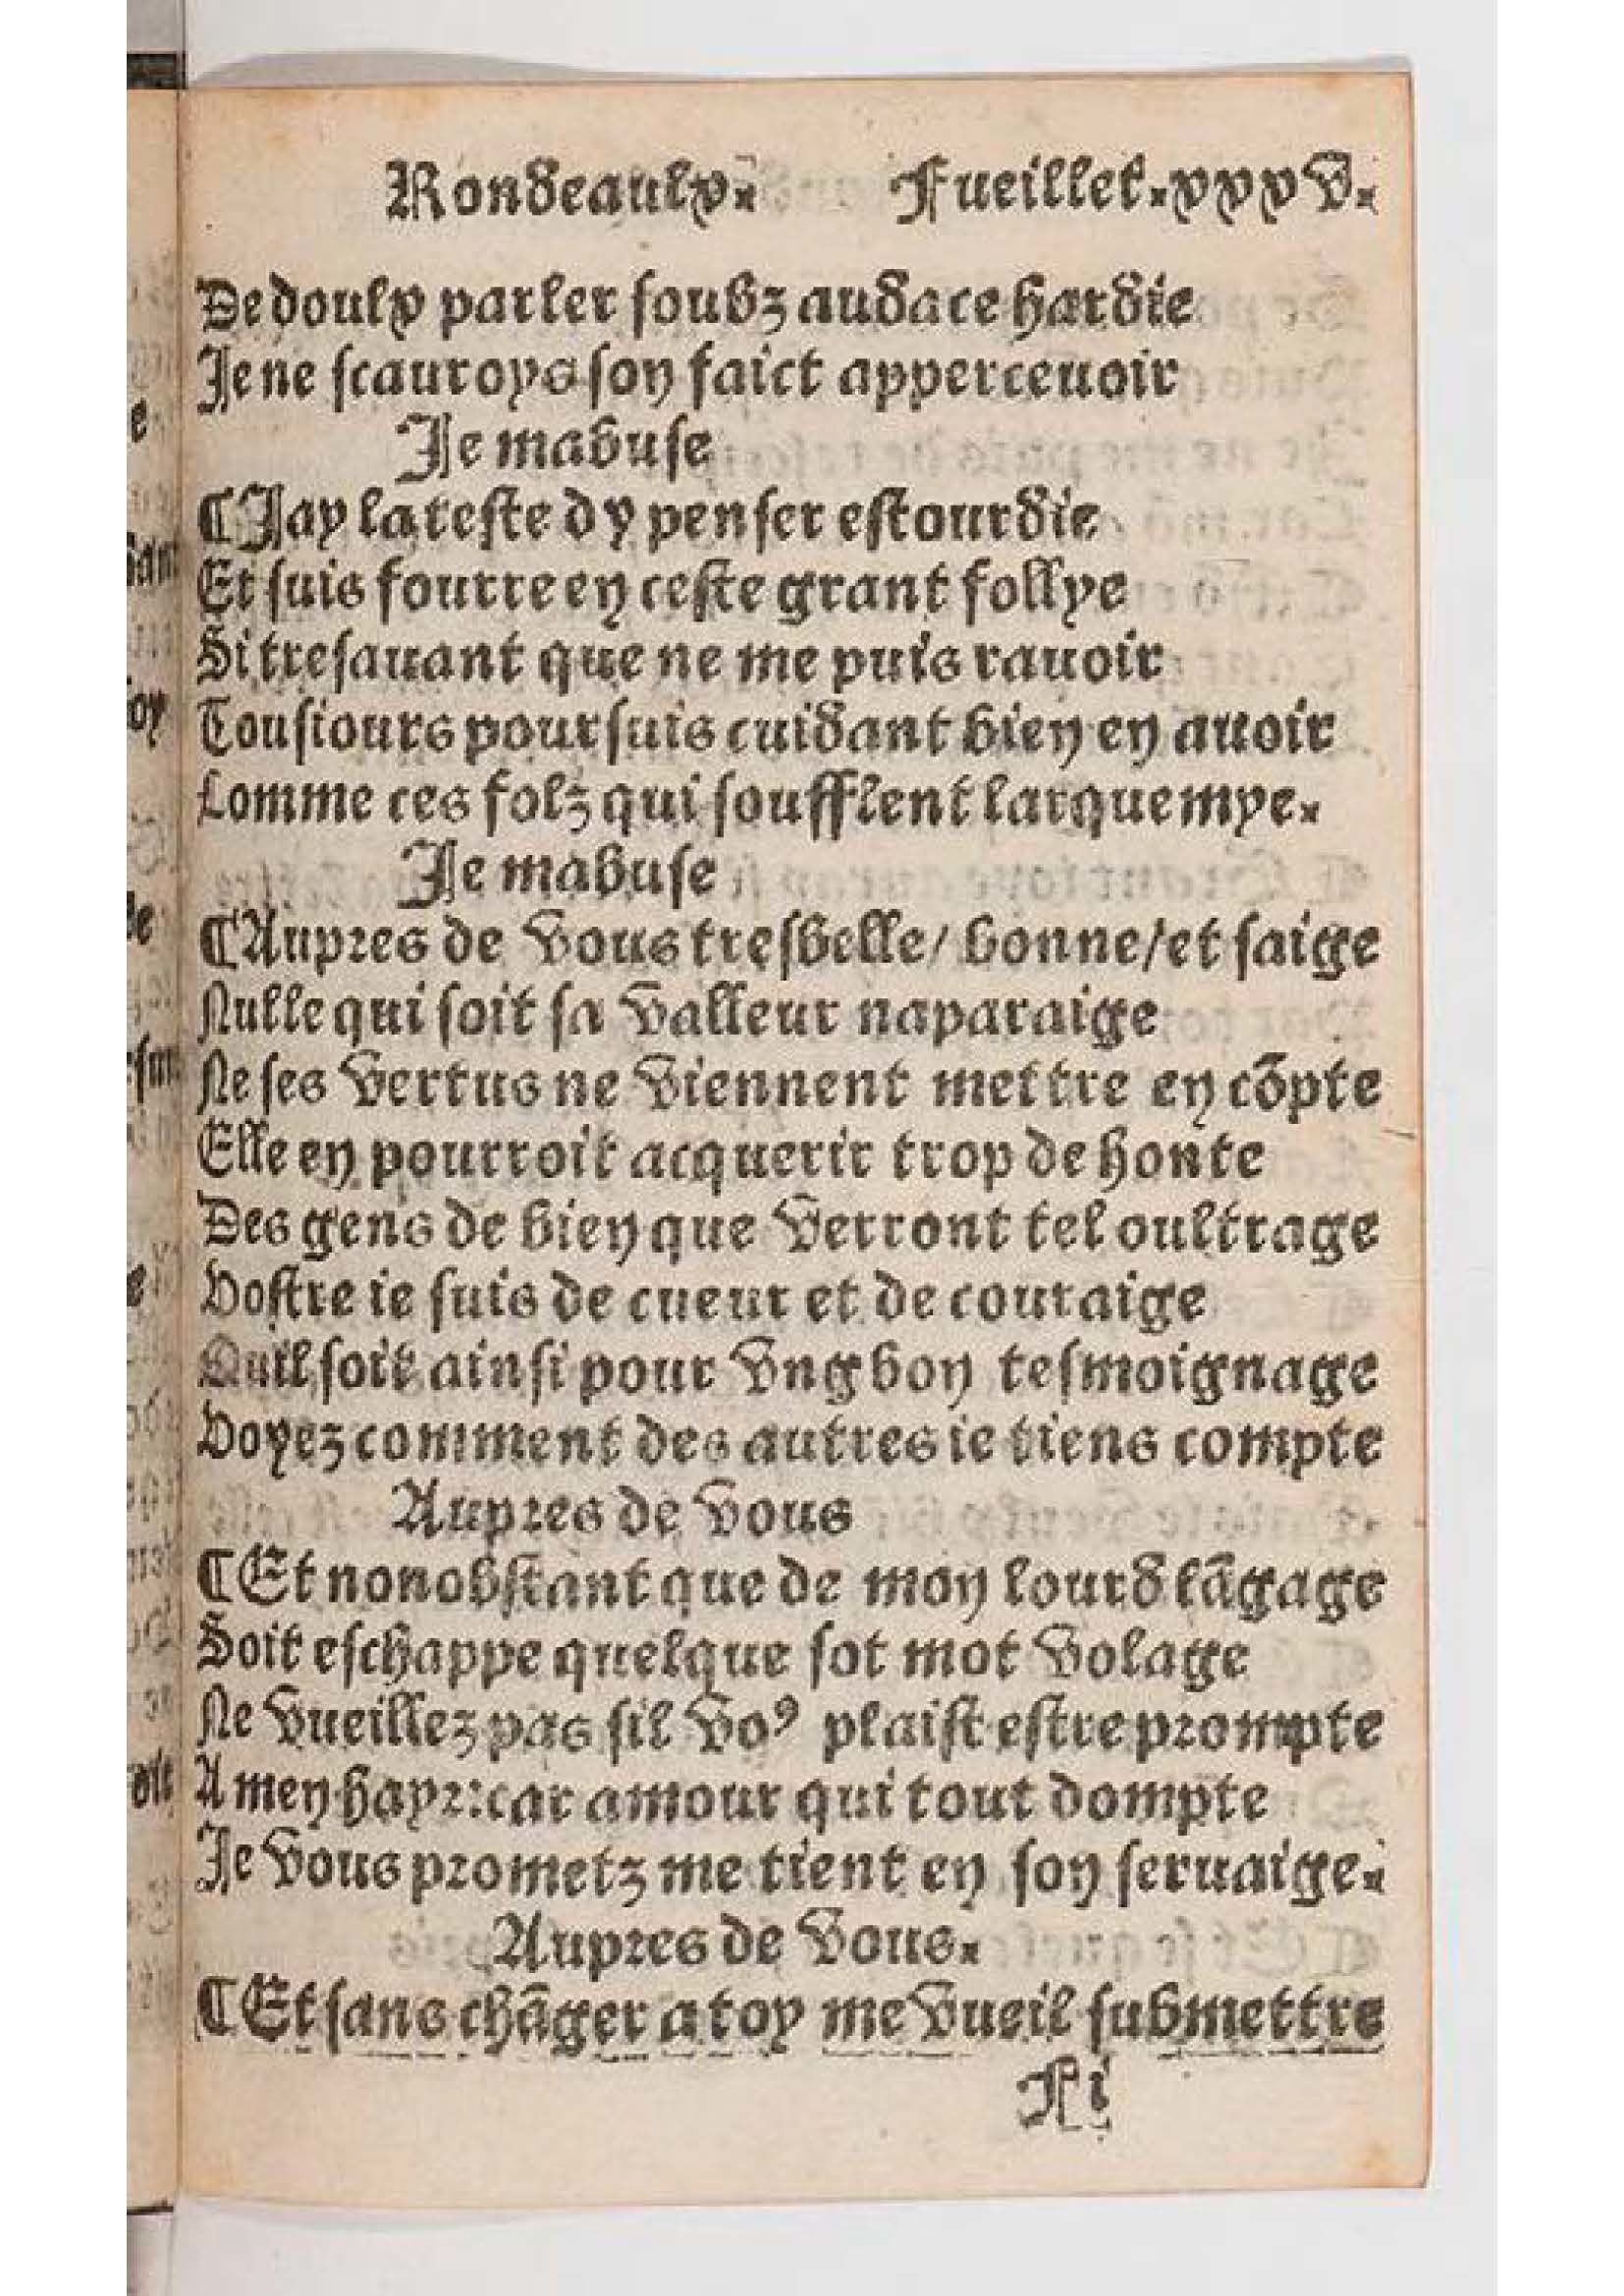 Rondeaulx. Fueillet.xxxv.
De doulx parler soubz audace hardie
Je ne scauroys son faict appercevoir
Je mabuse
¶Jay la teste dy penser estourdie
Et suis fourre en ceste grant follye
Si tresauant que ne me puis rauoir
Tousiours poursuis cuidant bien en auoir
Comme ces folz qui soufflent larquemye.
Je mabuse
¶Aupres de vous tresbelle/ bonne/et saige
Nulle qui soit sa valleur naparaige
Ne ses vertus ne viennent mettre en cõpte
Elle en pourroit acquerir trop de honte
Des gens de bien que verront tel oultrage
Vostre ie suis de cueur et de couraige
Quil soit ainsi pour vng bon tesmoignage
Voyez comment des autres ie tiens compte
Aupres de vous
¶Et nonobstant que de mon lourd lãgage
Soit eschappe quelque sot mot volage
Ne vueillez pas sil voꝰ plaist estre prompte
A men hayr: car amour qui tout dompte
Je vous prometz me tient en son seruaige.
Aupres de vous.
¶Et sans chãger a toy me vueil submettre